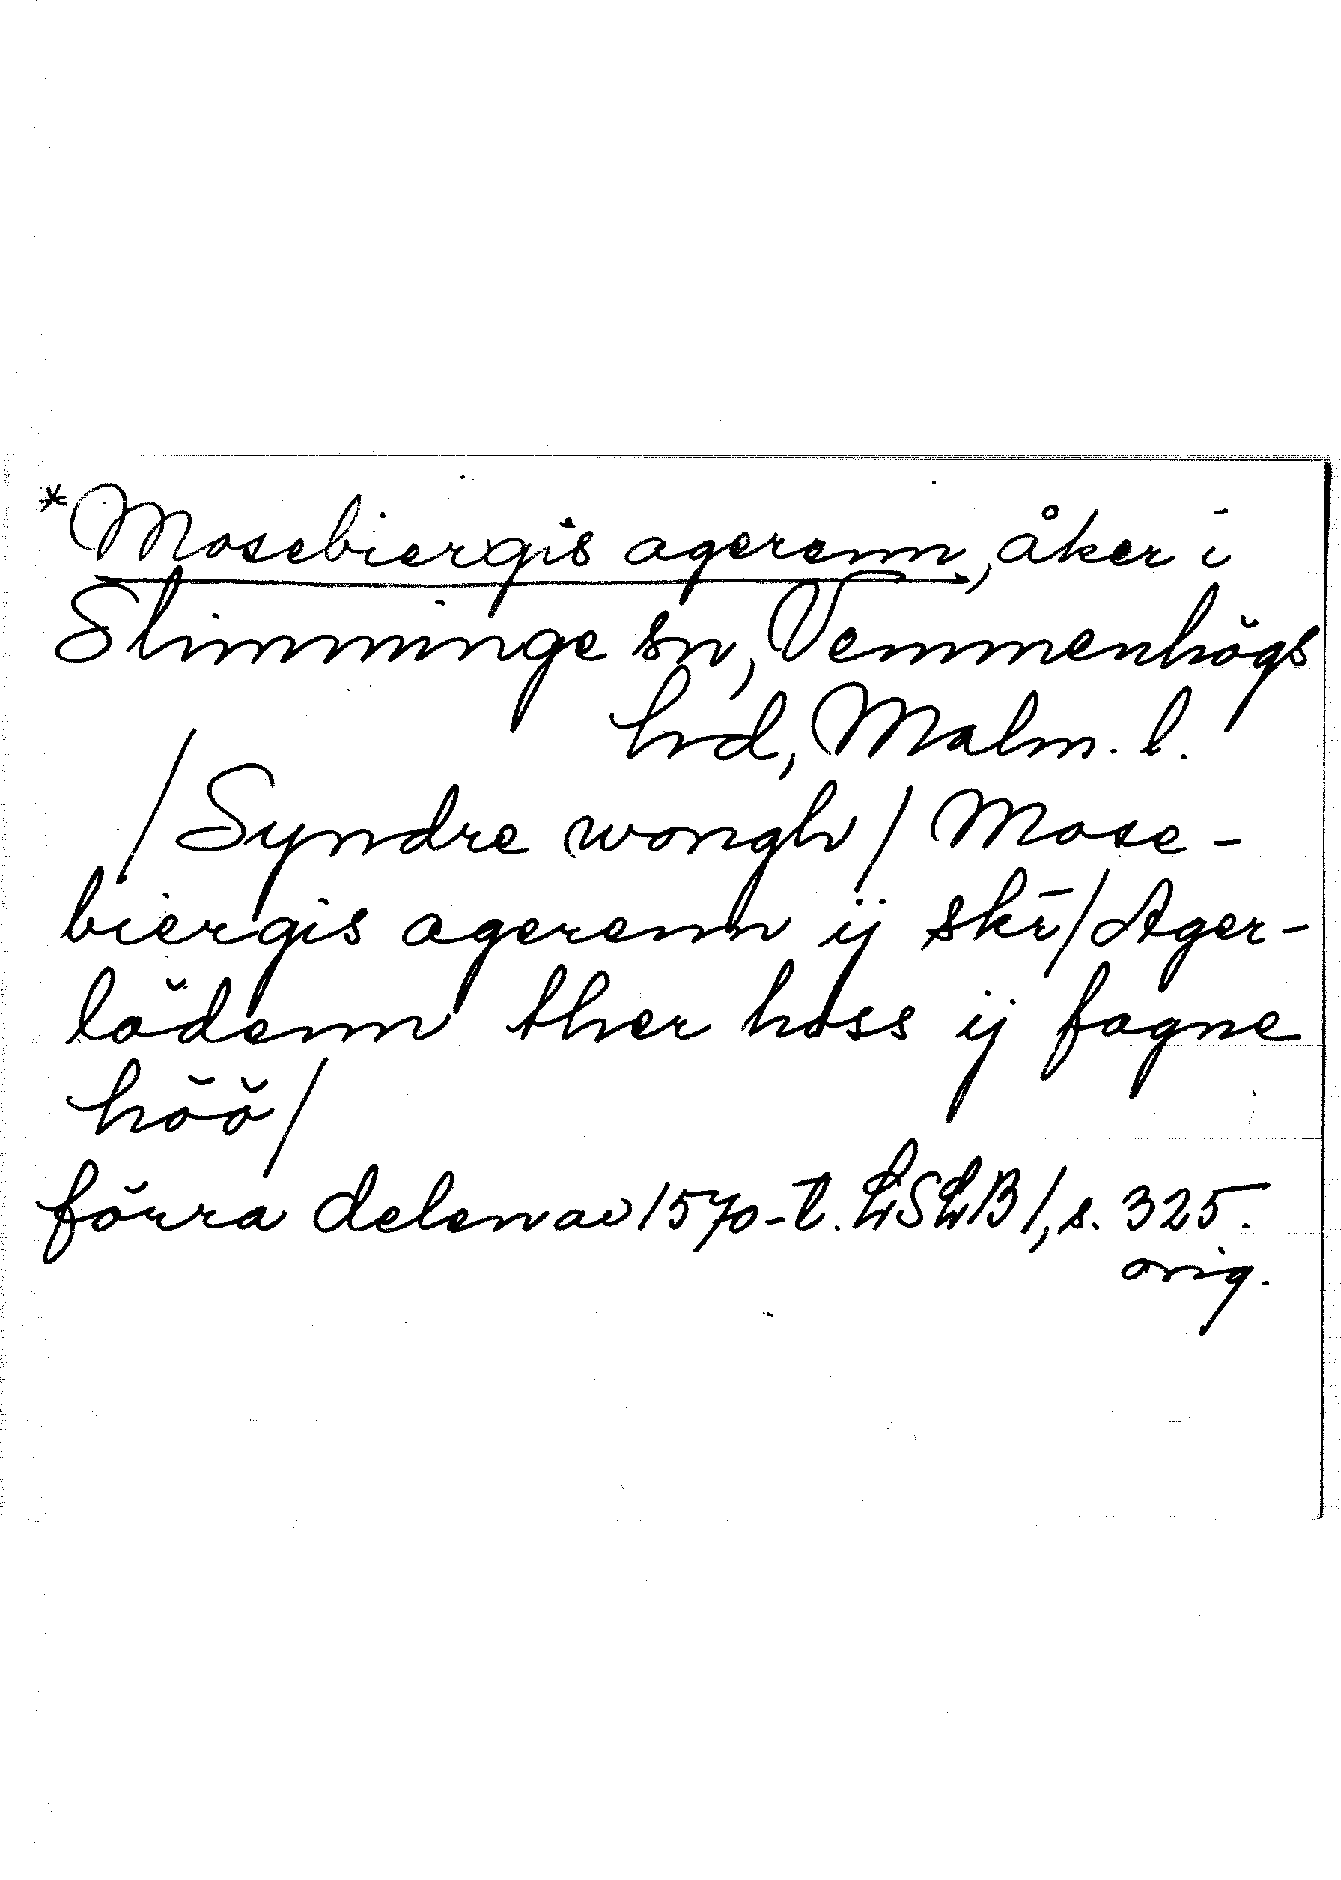 *Mosebiergis agerenn, åker i
Slimminge sn, Vemmenhögs
hrd, Malm. l.
/Syndre wongh/ Mose-
biergis agerenn ij skr̄/Ager-
lödenn ther hoss ij fagne
höö/
förra delen av 1570-t. LSLB 1, s. 325.
orig.